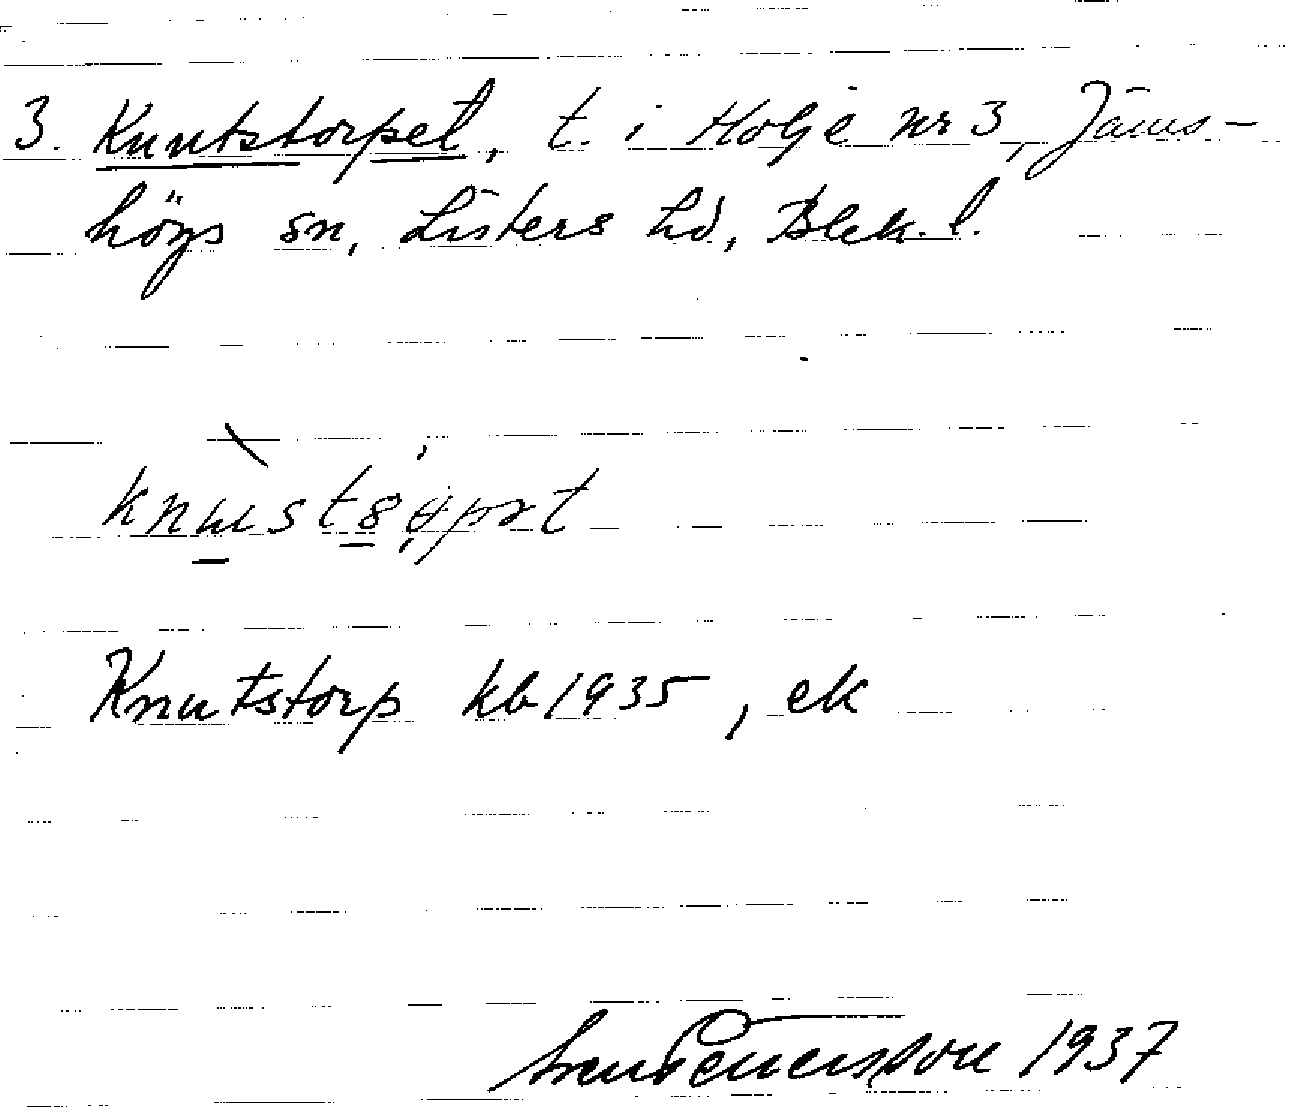 3. Knutstorpet, t. i Holje nr 3, Jäms-
högs sn, Listers hd, Blek. l.
Knutstorp kb 1935, ek
1937